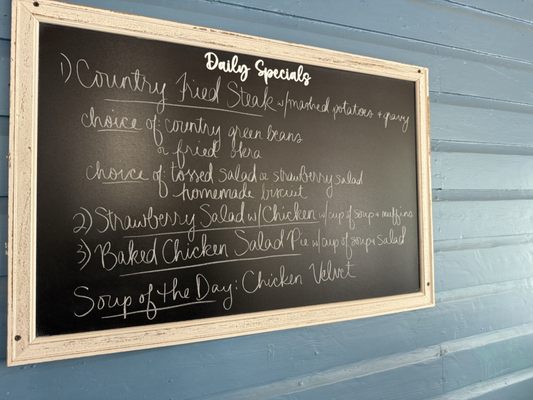 Daily Specials
1) Country Fried Steak w/mashed potatoes + gravy
choice of: country green beans
or fried okra
choice of: tossed salad or strawberry salad
homemade biscuit
2) Strawberry Salad w/ Chicken w/ cup of soup + muffins
3) Baked Chicken Salad Pie w/ cup of soup + salad
Soup of the Day: Chicken Velvet